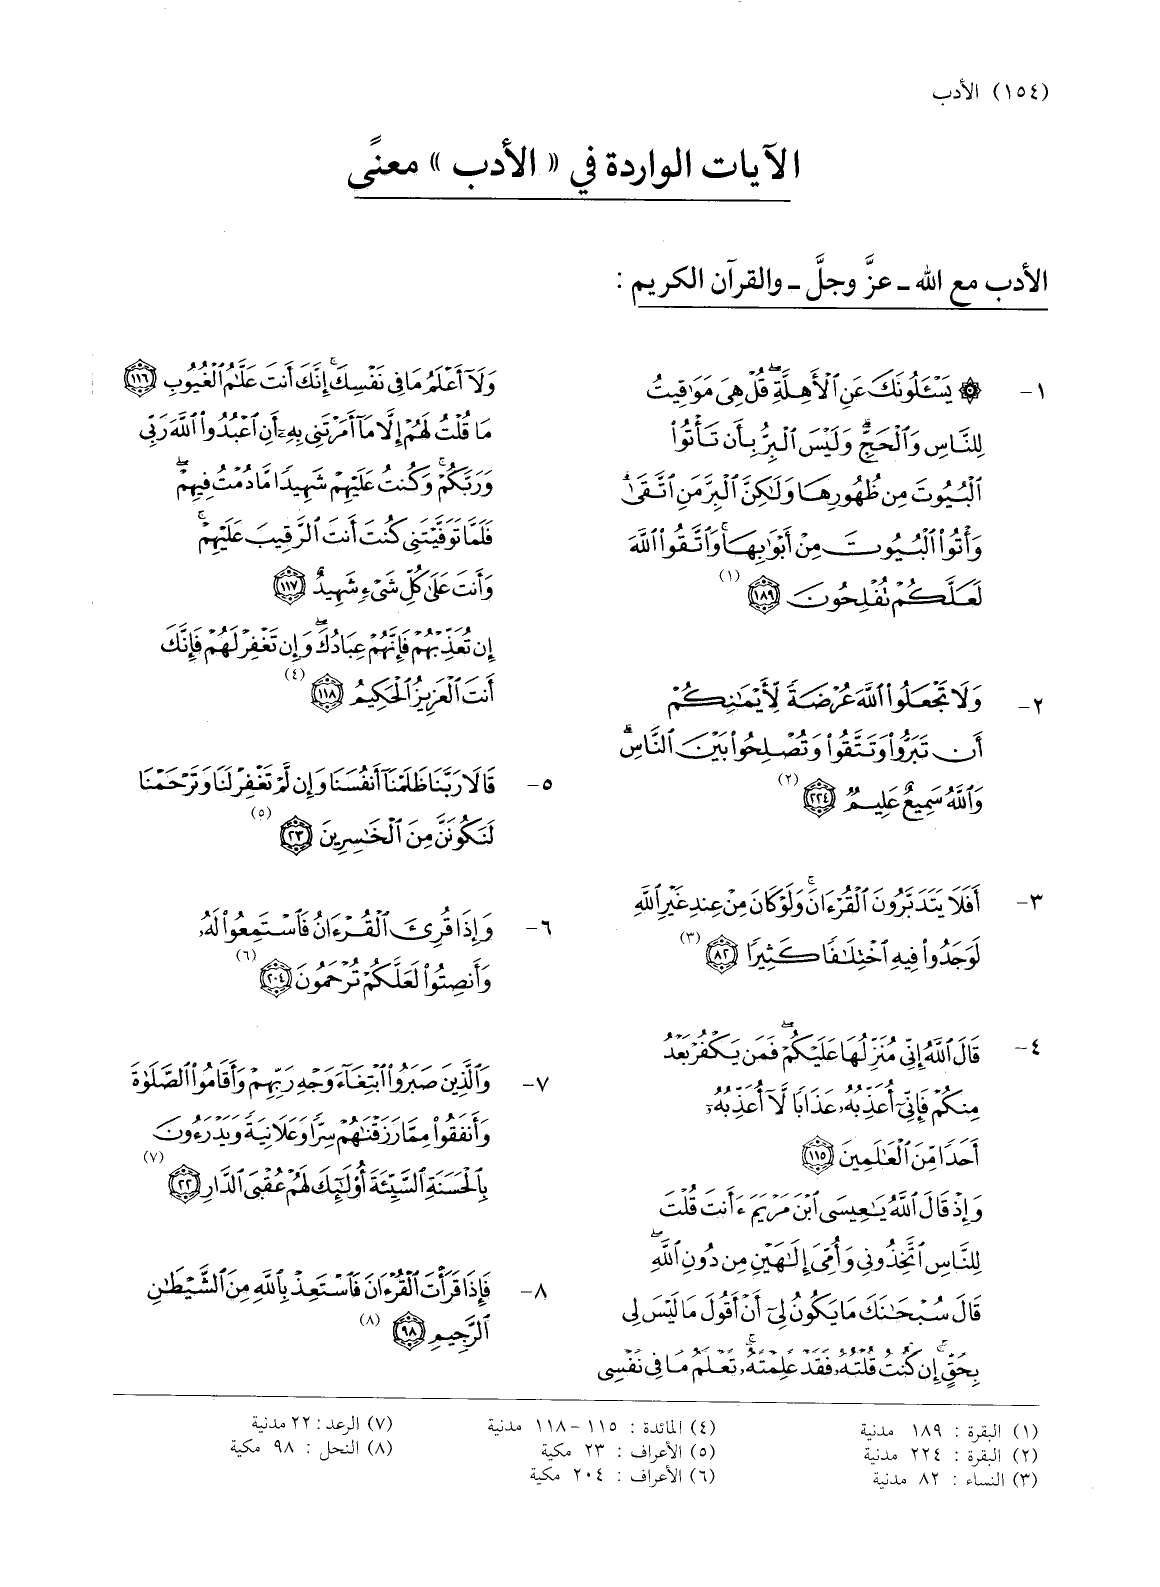 (١٥٤) الأدب
الآيات الواردة في «الأدب» معنًى
الأدب مع الله ـ عزَّ وجلَّ ـ والقرآن الكريم :
١- ۞ يَسْـَٔلُونَكَ عَنِ ٱلْأَهِلَّةِ ۖ قُلْ هِىَ مَوَٰقِيتُ
لِلنَّاسِ وَٱلْحَجِّ ۗ وَلَيْسَ ٱلْبِرُّ بِأَن تَأْتُوا۟
ٱلْبُيُوتَ مِن ظُهُورِهَا وَلَـٰكِنَّ ٱلْبِرَّ مَنِ ٱتَّقَىٰ ۗ
وَأْتُوا۟ ٱلْبُيُوتَ مِنْ أَبْوَٰبِهَا ۚ وَٱتَّقُوا۟ ٱللَّهَ
لَعَلَّكُمْ تُفْلِحُونَ ﴿١٨٩﴾ (١)
٢- وَلَا تَجْعَلُوا۟ ٱللَّهَ عُرْضَةً لِّأَيْمَـٰنِكُمْ
أَن تَبَرُّوا۟ وَتَتَّقُوا۟ وَتُصْلِحُوا۟ بَيْنَ ٱلنَّاسِ ۗ
وَٱللَّهُ سَمِيعٌ عَلِيمٌ ﴿٢٢٤﴾ (٢)
٣- أَفَلَا يَتَدَبَّرُونَ ٱلْقُرْءَانَ ۚ وَلَوْ كَانَ مِنْ عِندِ غَيْرِ ٱللَّهِ
لَوَجَدُوا۟ فِيهِ ٱخْتِلَـٰفًا كَثِيرًا ﴿٨٢﴾ (٣)
٤- قَالَ ٱللَّهُ إِنِّى مُنَزِّلُهَا عَلَيْكُمْ ۖ فَمَن يَكْفُرْ بَعْدُ
مِنكُمْ فَإِنِّىٓ أُعَذِّبُهُۥ عَذَابًا لَّآ أُعَذِّبُهُۥٓ
أَحَدًا مِّنَ ٱلْعَـٰلَمِينَ ﴿١١٥﴾
وَإِذْ قَالَ ٱللَّهُ يَـٰعِيسَى ٱبْنَ مَرْيَمَ ءَأَنتَ قُلْتَ
لِلنَّاسِ ٱتَّخِذُونِى وَأُمِّىَ إِلَـٰهَيْنِ مِن دُونِ ٱللَّهِ ۖ
قَالَ سُبْحَـٰنَكَ مَا يَكُونُ لِىٓ أَنْ أَقُولَ مَا لَيْسَ لِى
بِحَقٍّ ۚ إِن كُنتُ قُلْتُهُۥ فَقَدْ عَلِمْتَهُۥ ۚ تَعْلَمُ مَا فِى نَفْسِى
وَلَآ أَعْلَمُ مَا فِى نَفْسِكَ ۚ إِنَّكَ أَنتَ عَلَّـٰمُ ٱلْغُيُوبِ ﴿١١٦﴾
مَا قُلْتُ لَهُمْ إِلَّا مَآ أَمَرْتَنِى بِهِۦٓ أَنِ ٱعْبُدُوا۟ ٱللَّهَ رَبِّى
وَرَبَّكُمْ ۚ وَكُنتُ عَلَيْهِمْ شَهِيدًا مَّا دُمْتُ فِيهِمْ ۖ
فَلَمَّا تَوَفَّيْتَنِى كُنتَ أَنتَ ٱلرَّقِيبَ عَلَيْهِمْ ۚ
وَأَنتَ عَلَىٰ كُلِّ شَىْءٍ شَهِيدٌ ﴿١١٧﴾
إِن تُعَذِّبْهُمْ فَإِنَّهُمْ عِبَادُكَ ۖ وَإِن تَغْفِرْ لَهُمْ فَإِنَّكَ
أَنتَ ٱلْعَزِيزُ ٱلْحَكِيمُ ﴿١١٨﴾ (٤)
٥- قَالَا رَبَّنَا ظَلَمْنَآ أَنفُسَنَا وَإِن لَّمْ تَغْفِرْ لَنَا وَتَرْحَمْنَا
لَنَكُونَنَّ مِنَ ٱلْخَـٰسِرِينَ ﴿٢٣﴾ (٥)
٦- وَإِذَا قُرِئَ ٱلْقُرْءَانُ فَٱسْتَمِعُوا۟ لَهُۥ
وَأَنصِتُوا۟ لَعَلَّكُمْ تُرْحَمُونَ ﴿٢٠٤﴾ (٦)
٧- وَٱلَّذِينَ صَبَرُوا۟ ٱبْتِغَآءَ وَجْهِ رَبِّهِمْ وَأَقَامُوا۟ ٱلصَّلَوٰةَ
وَأَنفَقُوا۟ مِمَّا رَزَقْنَـٰهُمْ سِرًّا وَعَلَانِيَةً وَيَدْرَءُونَ
بِٱلْحَسَنَةِ ٱلسَّيِّئَةَ أُو۟لَـٰٓئِكَ لَهُمْ عُقْبَى ٱلدَّارِ ﴿٢٢﴾ (٧)
٨- فَإِذَا قَرَأْتَ ٱلْقُرْءَانَ فَٱسْتَعِذْ بِٱللَّهِ مِنَ ٱلشَّيْطَـٰنِ
ٱلرَّجِيمِ ﴿٩٨﴾ (٨)
(١) البقرة : ١٨٩ مدنية
(٢) البقرة : ٢٢٤ مدنية
(٣) النساء : ٨٢ مدنية
(٤) المائدة : ١١٥ – ١١٨ مدنية
(٥) الأعراف : ٢٣ مكية
(٦) الأعراف : ٢٠٤ مكية
(٧) الرعد : ٢٢ مدنية
(٨) النحل : ٩٨ مكية